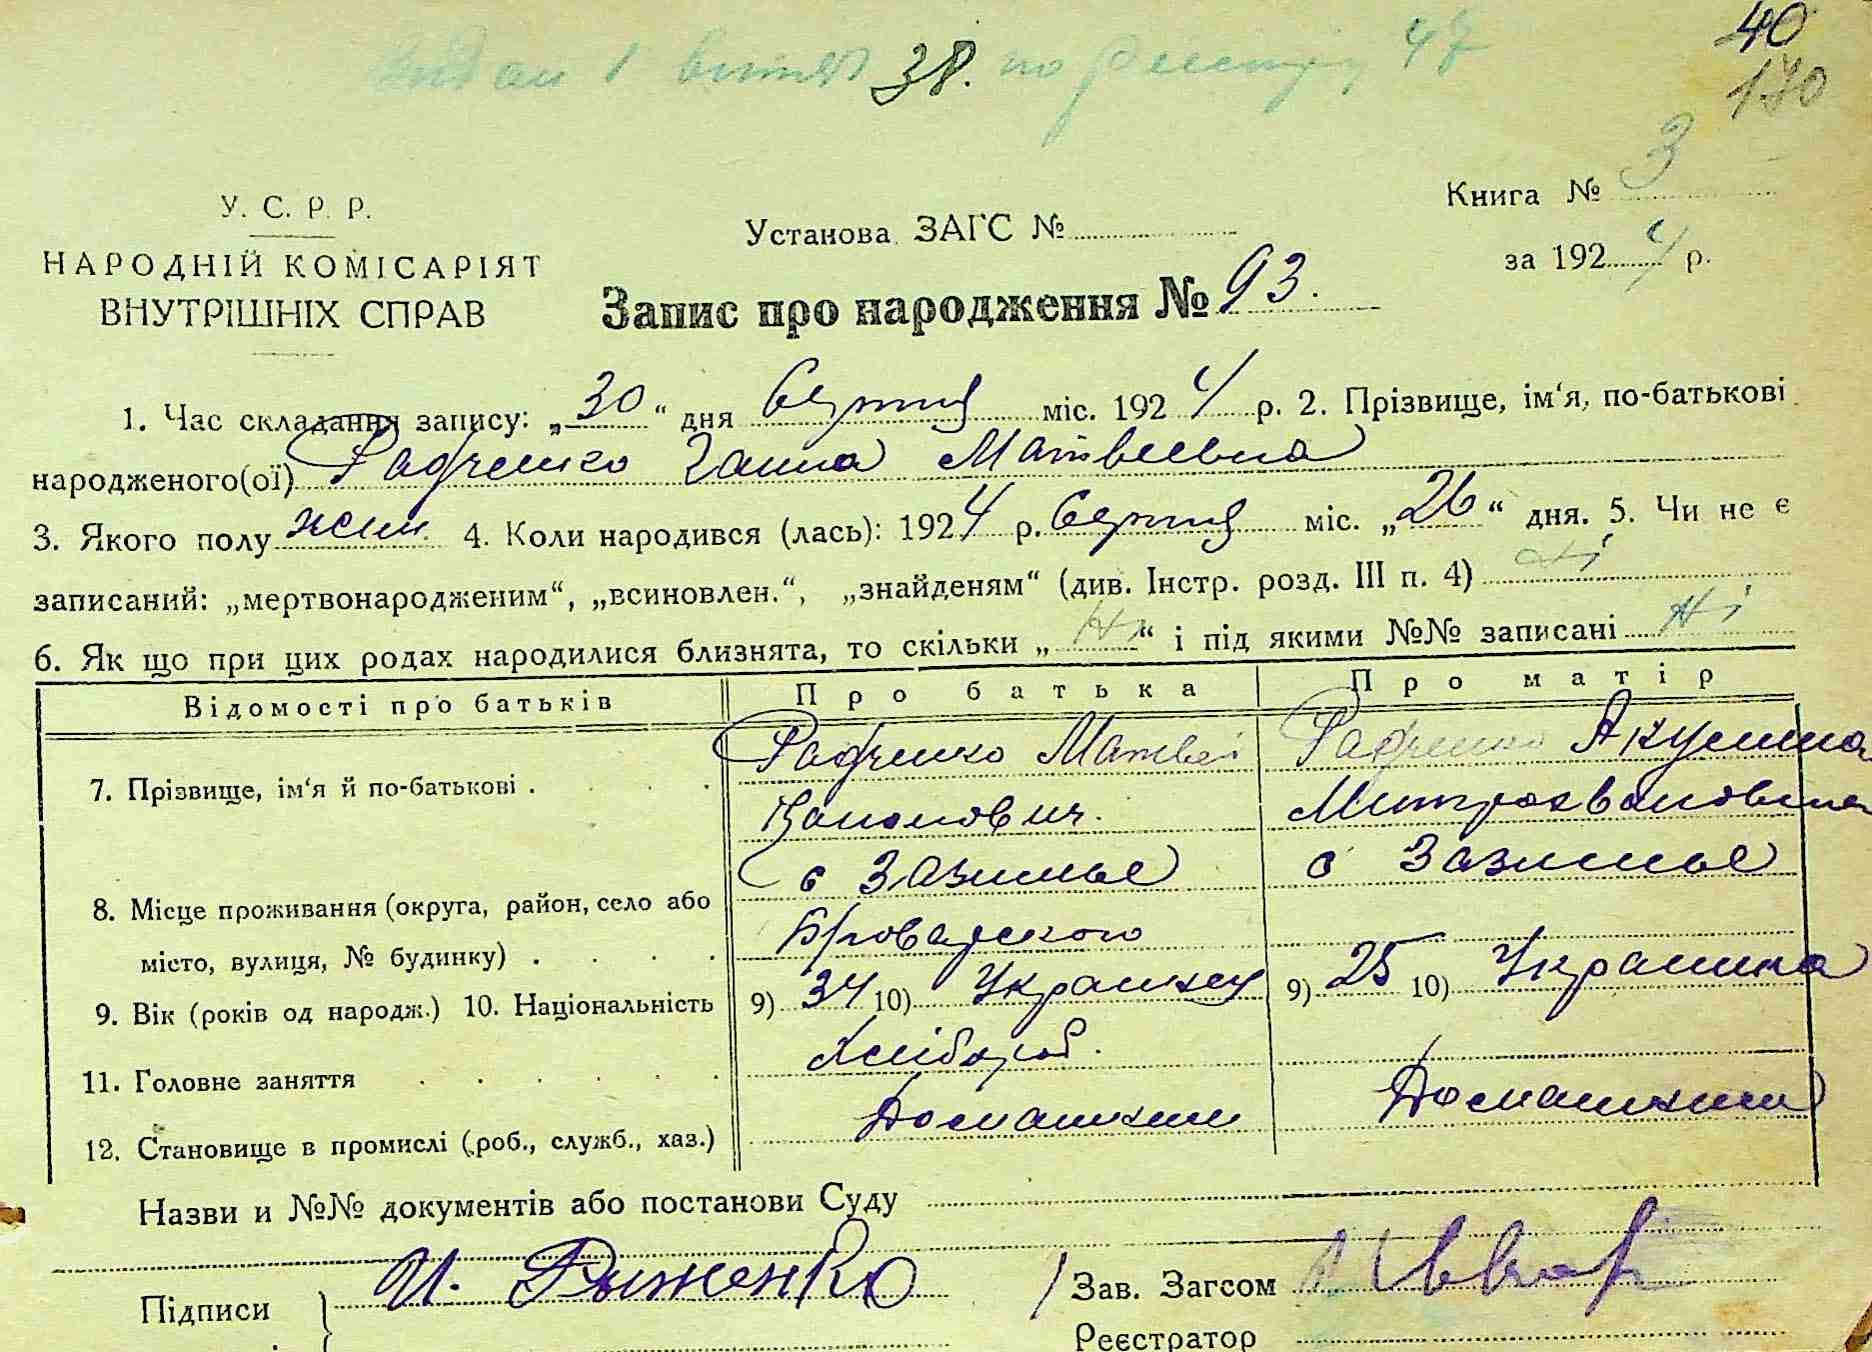 40
38. по реєстру 47
170
У. С. Р. Р.
НАРОДНІЙ КОМІСАРІЯТ
ВНУТРІШНІХ СПРАВ
Установа ЗАГС №
Книга № 3
за 1924 р.
Запис про народження № 93.
1. Час складання запису: „30“ дня Серпня міс. 1924 р. 2. Прізвище, ім‘я, по-батькові
народженого(ої) Радченко Ганна Матвеевна
3. Якого полу жин. 4. Коли народився (лась): 1924 р. Серпня міс. „26“ дня. 5. Чи не є
записаний: „мертвонародженим“, „всиновлен.“, „знайденям“ (див. Інстр. розд. III п. 4) Ні
6. Як що при цих родах народилися близнята, то скільки „Ні“ і під якими №№ записані Ні
Відомості про батьків Про батька Про матір
7. Прізвище, ім‘я й по-батькові . Радченко Матвей Радченко Акулина
8. Місце проживання (округа, район, село або с Зазимье с Зазимье
місто, вулиця, № будинку) . Броварского
9. Вік (років од народж.) 10. Національність 9) 34 10) Украинец 9) 25 10) Украинка
11. Головне заняття Хлібороб.
12. Становище в промислі (роб., служб., хаз.)
Назви и №№ документів або постанови Суду
Підписи И. Рыженко Зав. Загсом
Реєстратор